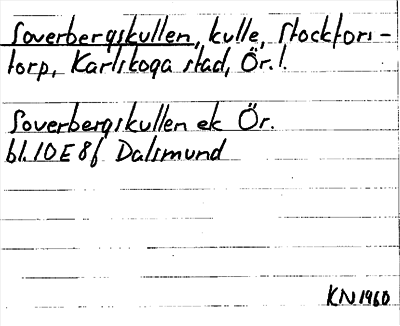 Soverbergskullen, kulle, Stockfors-
torp, Karlskoga stad, Ör.l.
Soverbergskullen ek Ör.
bl. 10E 8f Dalsmund
KN 1960